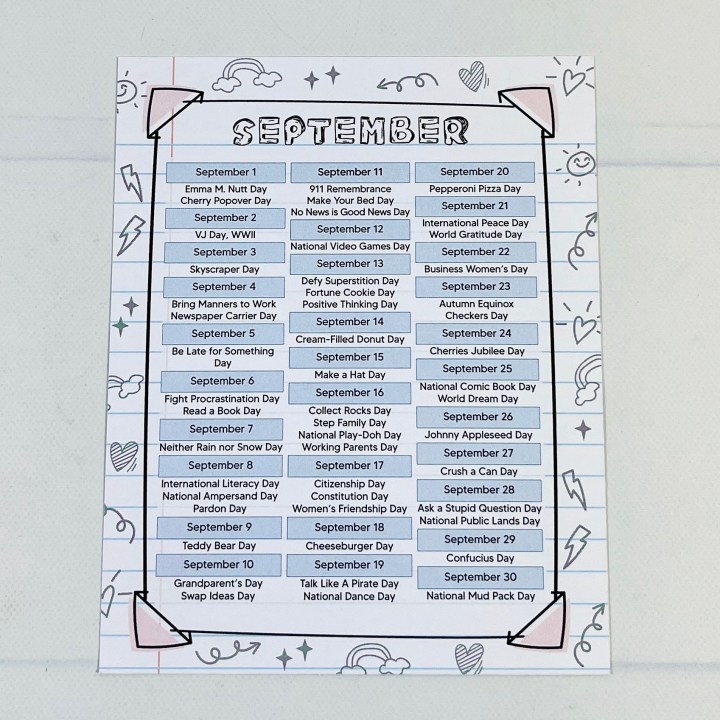 SEPTEMBER
September 1
Emma M. Nutt Day
Cherry Popover Day
September 2
VJ Day, WWII
September 3
Skyscraper Day
September 4
Bring Manners to Work
Newspaper Carrier Day
September 5
Be Late for Something
Day
September 6
Fight Procrastination Day
Read a Book Day
September 7
Neither Rain nor Snow Day
September 8
International Literacy Day
National Ampersand Day
Pardon Day
September 9
Teddy Bear Day
September 10
Grandparent's Day
Swap Ideas Day
September 11
911 Remembrance
Make Your Bed Day
No News is Good News Day
September 12
National Video Games Day
September 13
Defy Superstition Day
Fortune Cookie Day
Positive Thinking Day
September 14
Cream-Filled Donut Day
September 15
Make a Hat Day
September 16
Collect Rocks Day
Step Family Day
National Play-Doh Day
Working Parents Day
September 17
Citizenship Day
Constitution Day
Women's Friendship Day
September 18
Cheeseburger Day
September 19
Talk Like A Pirate Day
National Dance Day
September 20
Pepperoni Pizza Day
September 21
International Peace Day
World Gratitude Day
September 22
Business Women's Day
September 23
Autumn Equinox
Checkers Day
September 24
Cherries Jubilee Day
September 25
National Comic Book Day
World Dream Day
September 26
Johnny Appleseed Day
September 27
Crush a Can Day
September 28
Ask a Stupid Question Day
National Public Lands Day
September 29
Confucius Day
September 30
National Mud Pack Day